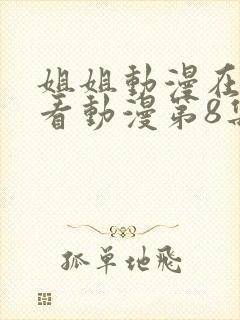 姐姐動漫在
看動漫第8集
孤單地飛